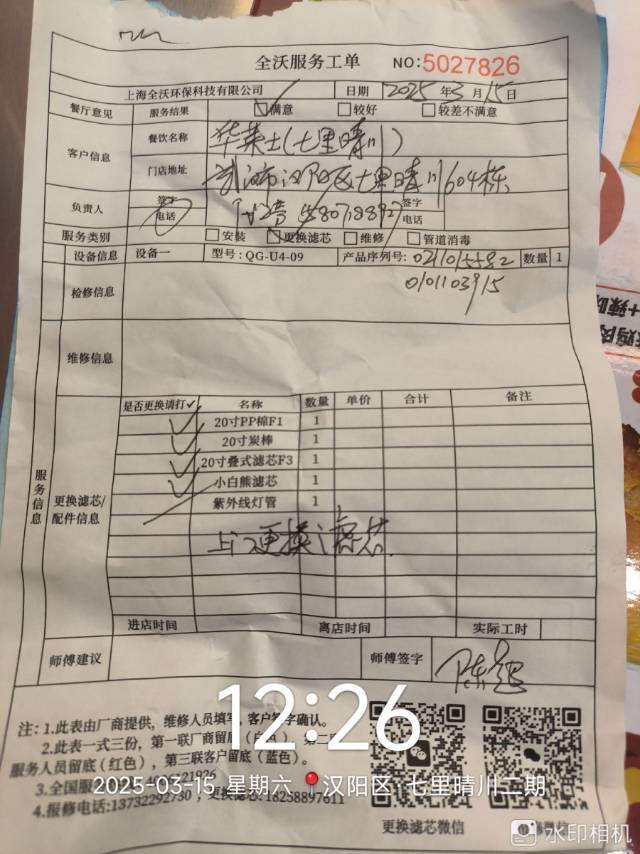 全沃服务工单 NO:5027826
上海全沃环保科技有限公司 日期 2025年3月15日
餐厅意见 服务结果 满意 较好 较差不满意
客户信息 餐饮名称 华莱士(七里晴川)
门店地址 武汉市汉阳区七里晴川604栋
负责人 签字 电话 签字 电话
服务类别 安装 更换滤芯 维修 管道消毒
设备信息 设备一 型号:QG-U4-09 产品序列号: 0211015582 数量 1
0101103915
检修信息
维修信息
服务信息
更换滤芯/配件信息
是否更换请打✓ 名称 数量 单价 合计 备注
✓ 20寸PP棉F1 1
✓ 20寸炭棒 1
✓ 20寸叠式滤芯F3 1
✓ 小白熊滤芯 1
紫外线灯管 1
上门更换滤芯
进店时间 离店时间 实际工时
师傅建议 师傅签字
注:1.此表由厂商提供，维修人员填写，客户签字确认。
2.此表一式三份，第一联厂商留底
服务人员留底(红色)，第三联客户留底(蓝色)。
3.全国服
4.报修电话:13732292730，更换滤芯:18258897611
更换滤芯微信
12:26
2025-03-15 星期六 汉阳区·七里晴川二期
水印相机